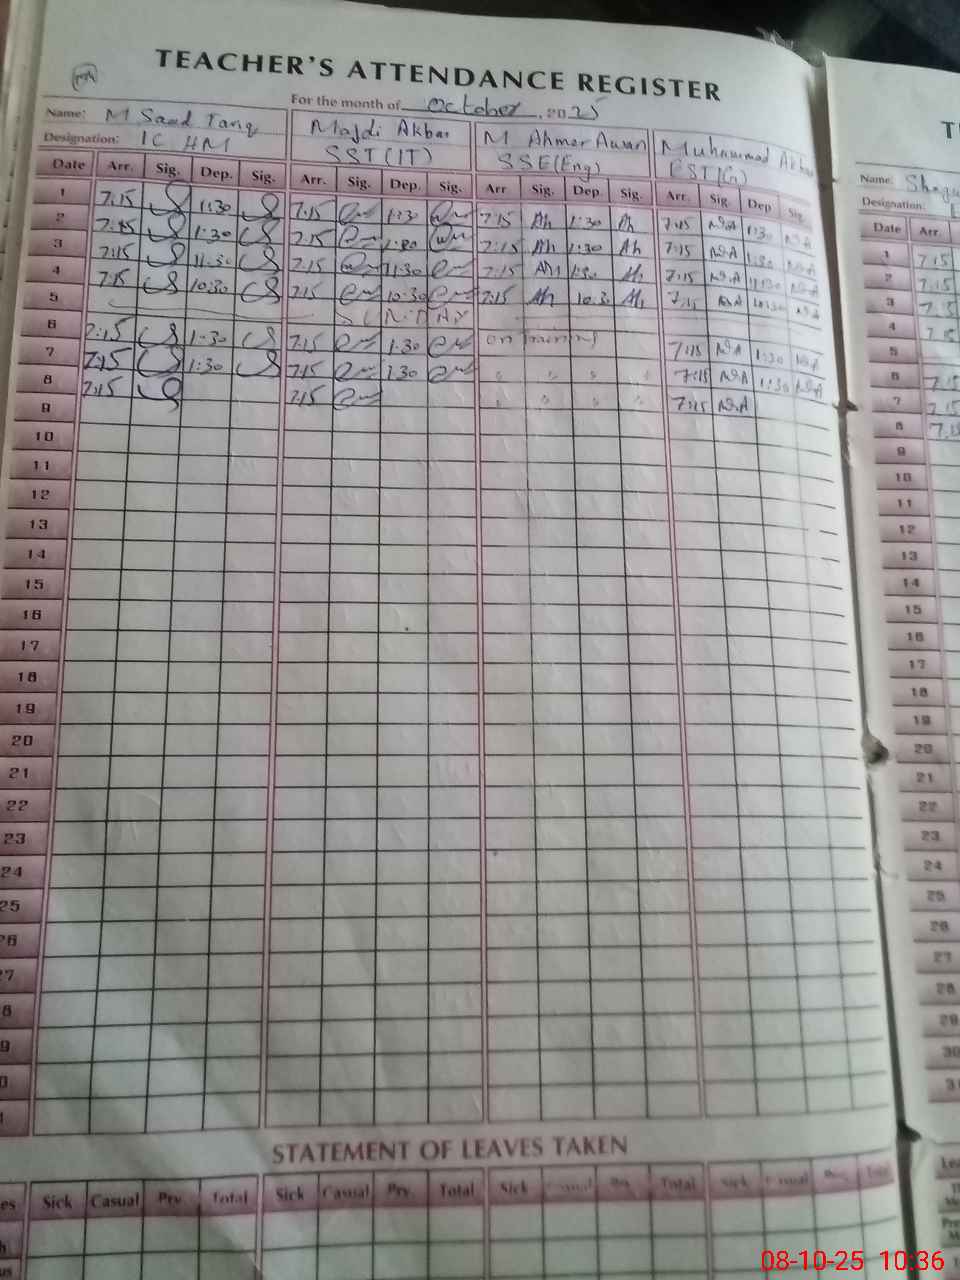 TEACHER'S ATTENDANCE REGISTER
For the month of October, 2025
Name: M Saad Tariq Majdi Akbar M Ahmer Awan Muhammad
Designation: IC HM SST(IT) SSE(Eng) EST(G)
Date Arr. Sig. Dep. Sig. Arr. Sig. Dep. Sig. Arr Sig. Dep Sig. Arr. Sig. Dep Sig.
1 7:15 1:30 7:15 1:30 7:15 Ah 1:30 Ah 7:15 1:30
2 7:15 1:30 7:15 1:30 7:15 Ah 1:30 Ah 7:15 1:30
3 7:15 11:30 7:15 11:30 7:15 Ah Ah 7:15 11:30
4 7:15 10:30 7:15 10:30 7:15 Ah 10:30 Ah 7:15 10:30
5 SUNDAY
6 7:15 1:30 7:15 1:30 on Training 7:15 1:30
7 7:15 1:30 7:15 1:30 7:15 1:30
8 7:15 7:15 7:15
9
10
11
12
13
14
15
16
17
18
19
20
21
22
23
24
25
26
27
8
9
0
1
STATEMENT OF LEAVES TAKEN
Sick Casual Prv. Total Sick Casual Prv. Total Sick Casual Prv. Total Sick Casual Prv. Total
T
Name:
Designation:
Date Arr.
1 7:15
2 7:15
3 7:15
4 7:15
5
6 7:15
7 7:15
8 7:15
9
10
11
12
13
14
15
16
17
18
19
20
21
22
23
24
25
26
27
28
29
30
3
08-10-25 10:36